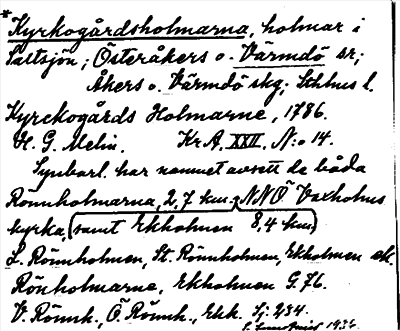 * Kyrkogårdsholmarna, holmar i
Saltsjön; Österåkers o. Värmdö sr;
Åkers o. Värmdö skg; Sthlms l.
Kyrckogårds Holmarne, 1786.
H. G. Melin. Kr.A. XXII, N:o 14.
Synbarl. har namnet avsett de båda
Rönnholmarna, 2,7 km NNÖ Vaxholms
kyrka, (samt Ekholmen 8,4 km)
L. Rönnholmen, St. Rönnholmen, Ekholmen ek.
Rönholmarne, Ekholmen G. 76.
V. Rönnh., Ö. Rönnh., Ekh. Sj. 234.